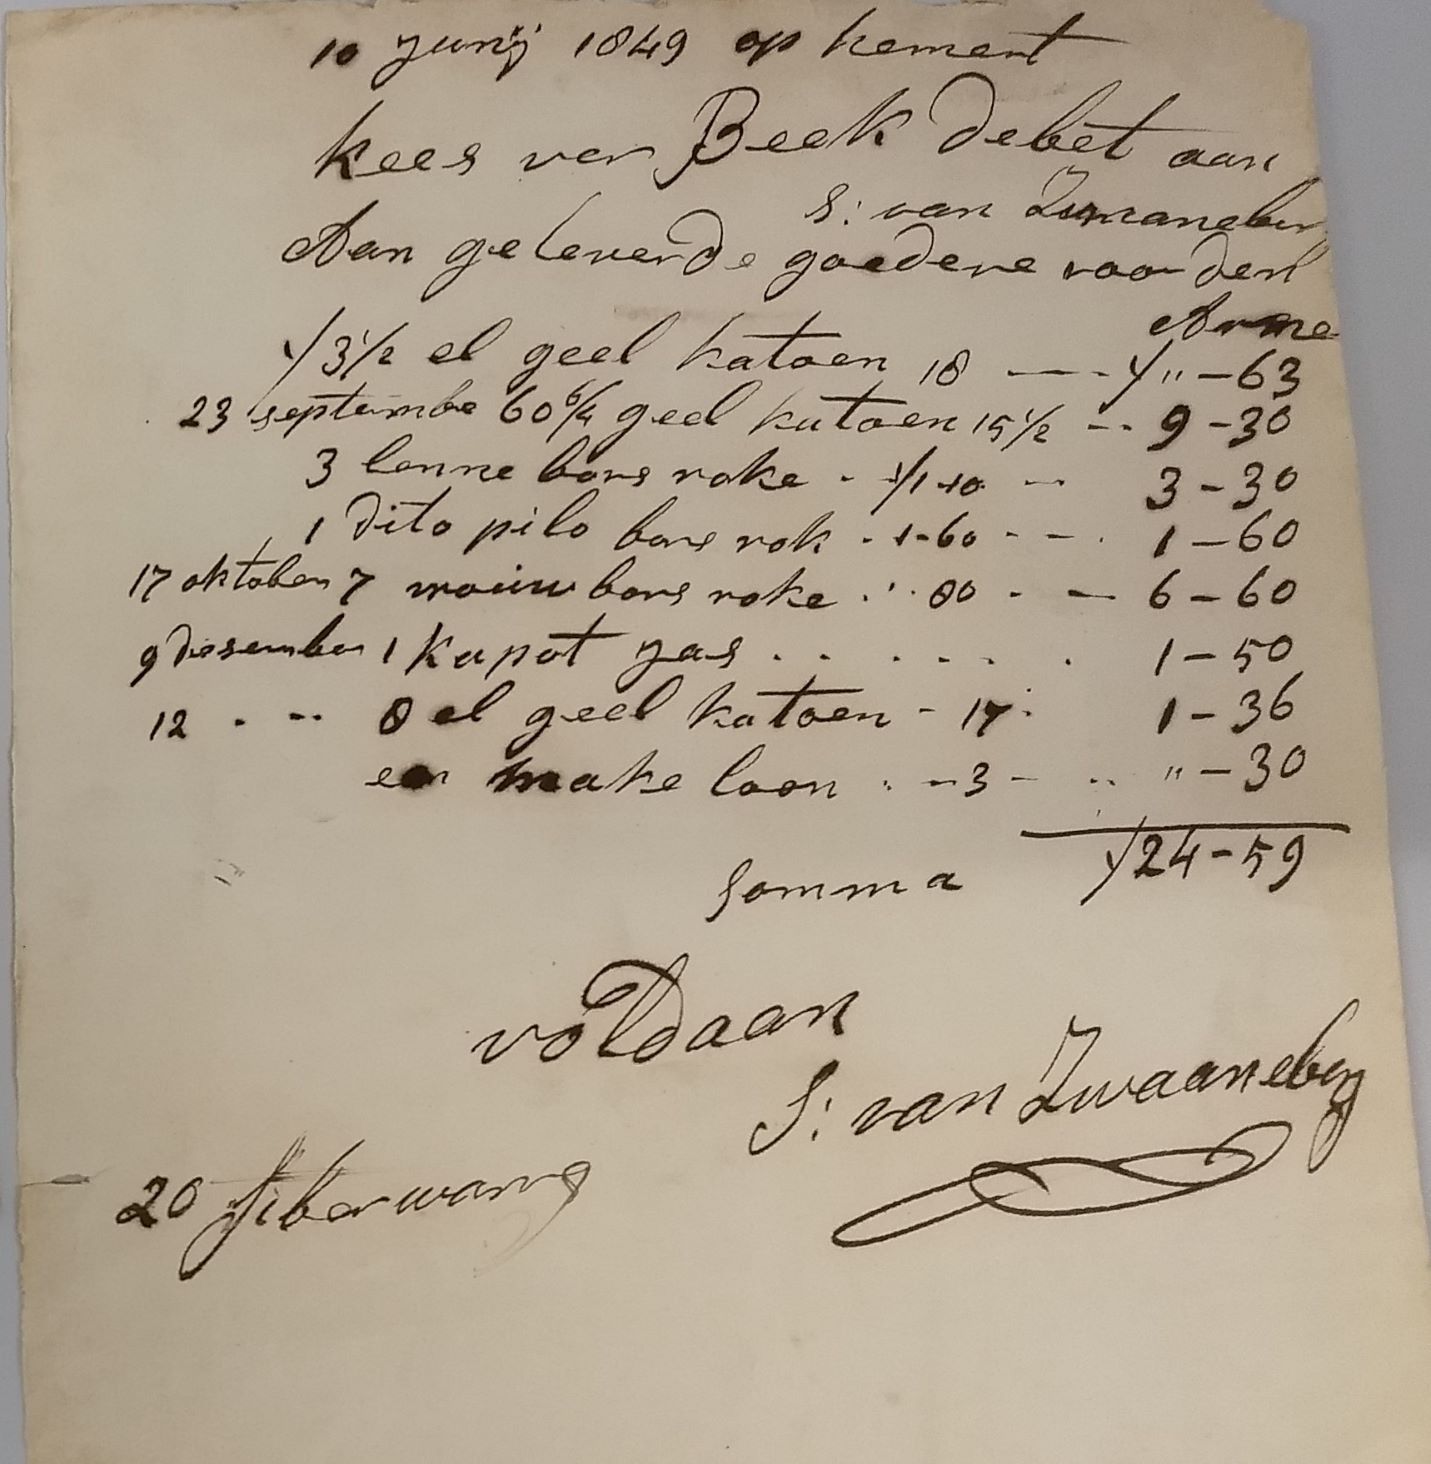 10 Junij 1849 op hement
Kees ver Beek Debet aan
S: van Zwaneberg
Aan geleverde goedere voor den
Arme
ƒ 3 1/2 el geel katoen 18 — - ƒ " - 63
23 septembe 60 6/4 geel katoen 15 1/2 - - 9 - 30
3 lenne bors roke - ƒ 1-10 - 3 - 30
1 dito pilo bors rok - 1-60 - - 1 - 60
17 oktober 7 vrouw bors roke . . 80 - - 6 - 60
9 desember 1 kapot jas . . . . . . 1 - 50
12 - - 8 el geel katoen - 17 . 1 - 36
en make loon . - 3 - - " - 30
somma ƒ 24 - 59
voldaan
S: van Zwaaneberg
20 fiberwarg